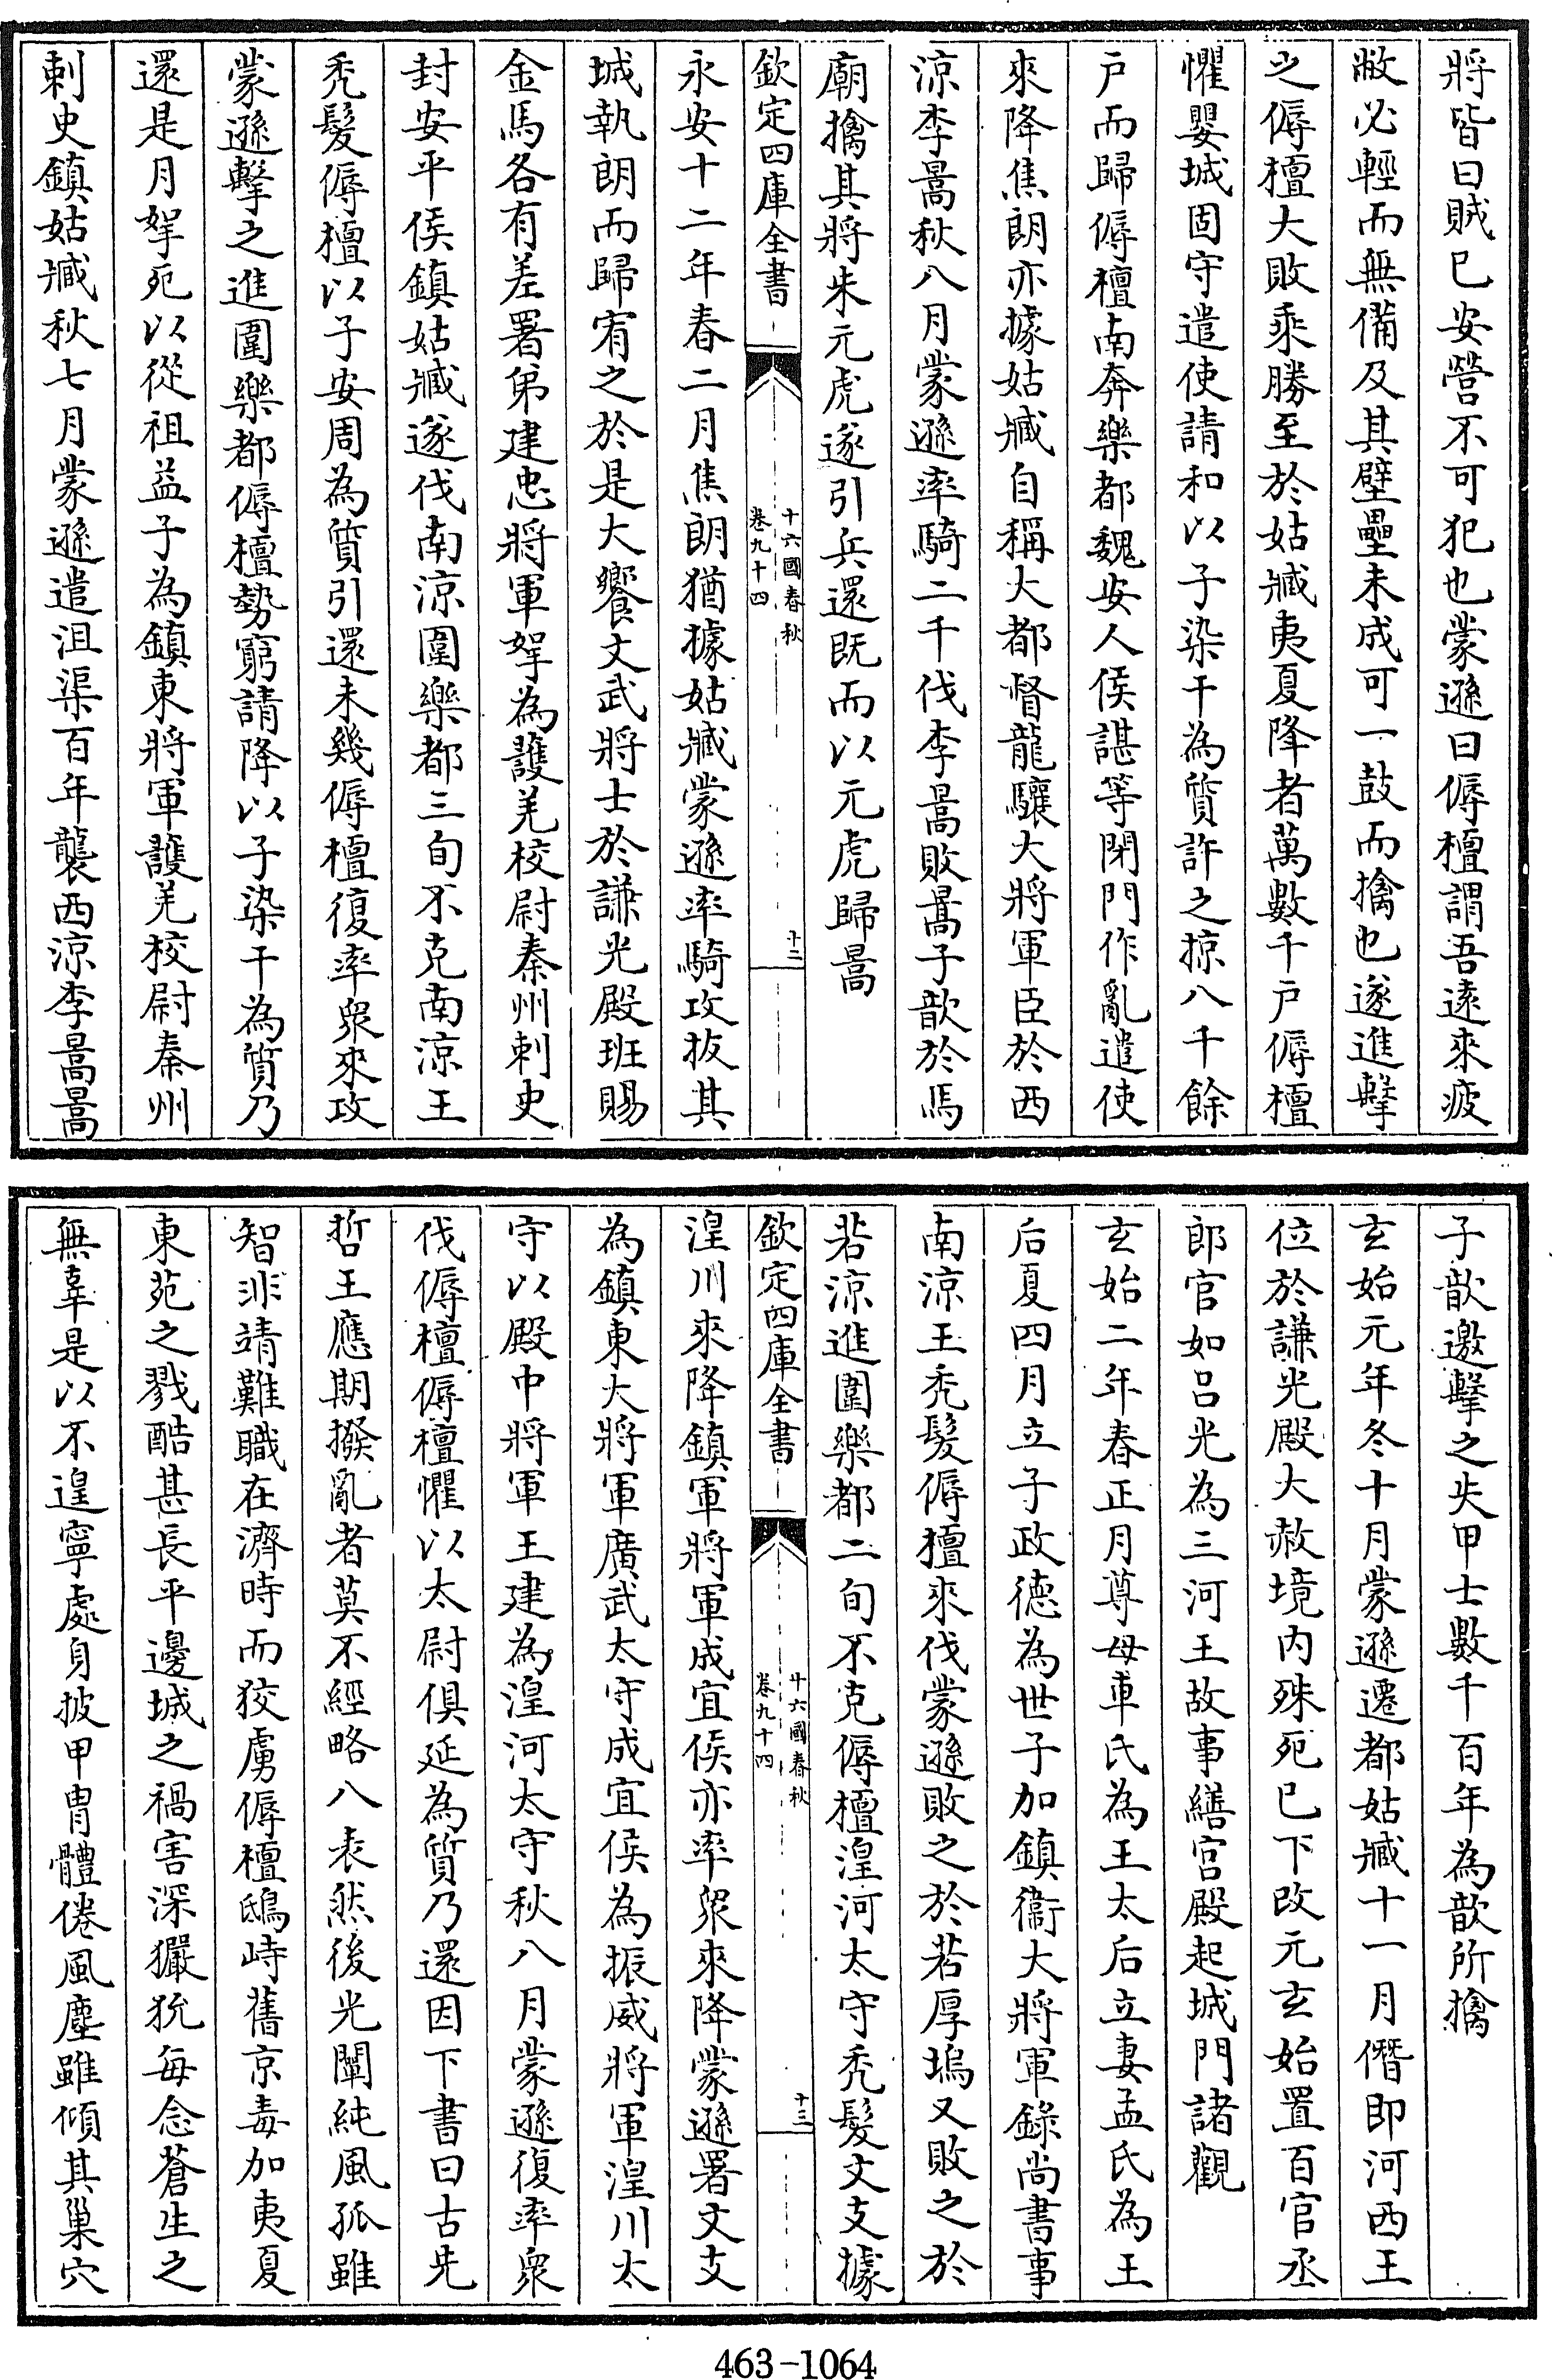 將皆曰賊已安營不可犯也蒙遜曰傉檀謂吾逺來疲
敝必輕而無備及其壁壘未成可一鼓而擒也遂進擊
之傉檀大敗乘勝至於姑臧夷夏降者萬數千户傉檀
懼嬰城固守遣使請和以子染干為質許之掠八千餘
户而歸傉檀南奔樂都魏安人侯諶等閉門作亂遣使
來降焦朗亦據姑臧自稱大都督龍驤大將軍臣於西
涼李暠秋八月蒙遜率騎二千伐李暠敗暠子歆於馬
廟擒其將朱元虎遂引兵還既而以元虎歸暠
欽定四庫全書
十六國春秋
卷九十四
十二
永安十二年春二月焦朗猶據姑臧蒙遜率騎攻拔其
城執朗而歸宥之於是大饗文武將士於謙光殿班賜
金馬各有差署弟建忠將軍挐為護羌校尉秦州刺史
封安平侯鎮姑臧遂伐南涼圍樂都三旬不克南涼王
秃髮傉檀以子安周為質引還未幾傉檀復率衆來攻
蒙遜擊之進圍樂都傉檀勢窮請降以子染干為質乃
還是月挐死以從祖益子為鎮東將軍護羌校尉秦州
刺史鎮姑臧秋七月蒙遜遣沮渠百年襲西涼李暠暠
子歆邀擊之失甲士數千百年為歆所擒
玄始元年冬十月蒙遜遷都姑臧十一月僭即河西王
位於謙光殿大赦境内殊死已下改元玄始置百官丞
郎官如吕光為三河王故事繕宫殿起城門諸觀
玄始二年春正月尊母車氏為王太后立妻孟氏為王
后夏四月立子政德為世子加鎮衞大將軍錄尚書事
南涼王秃髮傉檀來伐蒙遜敗之於若厚塢又敗之於
若涼進圍樂都二旬不克傉檀湟河太守秃髮文支據
欽定四庫全書
十六國春秋
卷九十四
十三
湟川來降鎮軍將軍成宜侯亦率衆來降蒙遜署文支
為鎮東大將軍廣武太守成宜侯為振威將軍湟川太
守以殿中將軍王建為湟河太守秋八月蒙遜復率衆
伐傉檀傉檀懼以太尉俱延為質乃還因下書曰古先
哲王應期撥亂者莫不經略八表然後光闡純風孤雖
智非靖難職在濟時而狡虜傉檀鴟峙舊京毒加夷夏
東苑之戮酷甚長平邊城之禍害深玁狁每念蒼生之
無辜是以不遑寧處身披甲胄體倦風塵雖傾其巢穴
463-1064